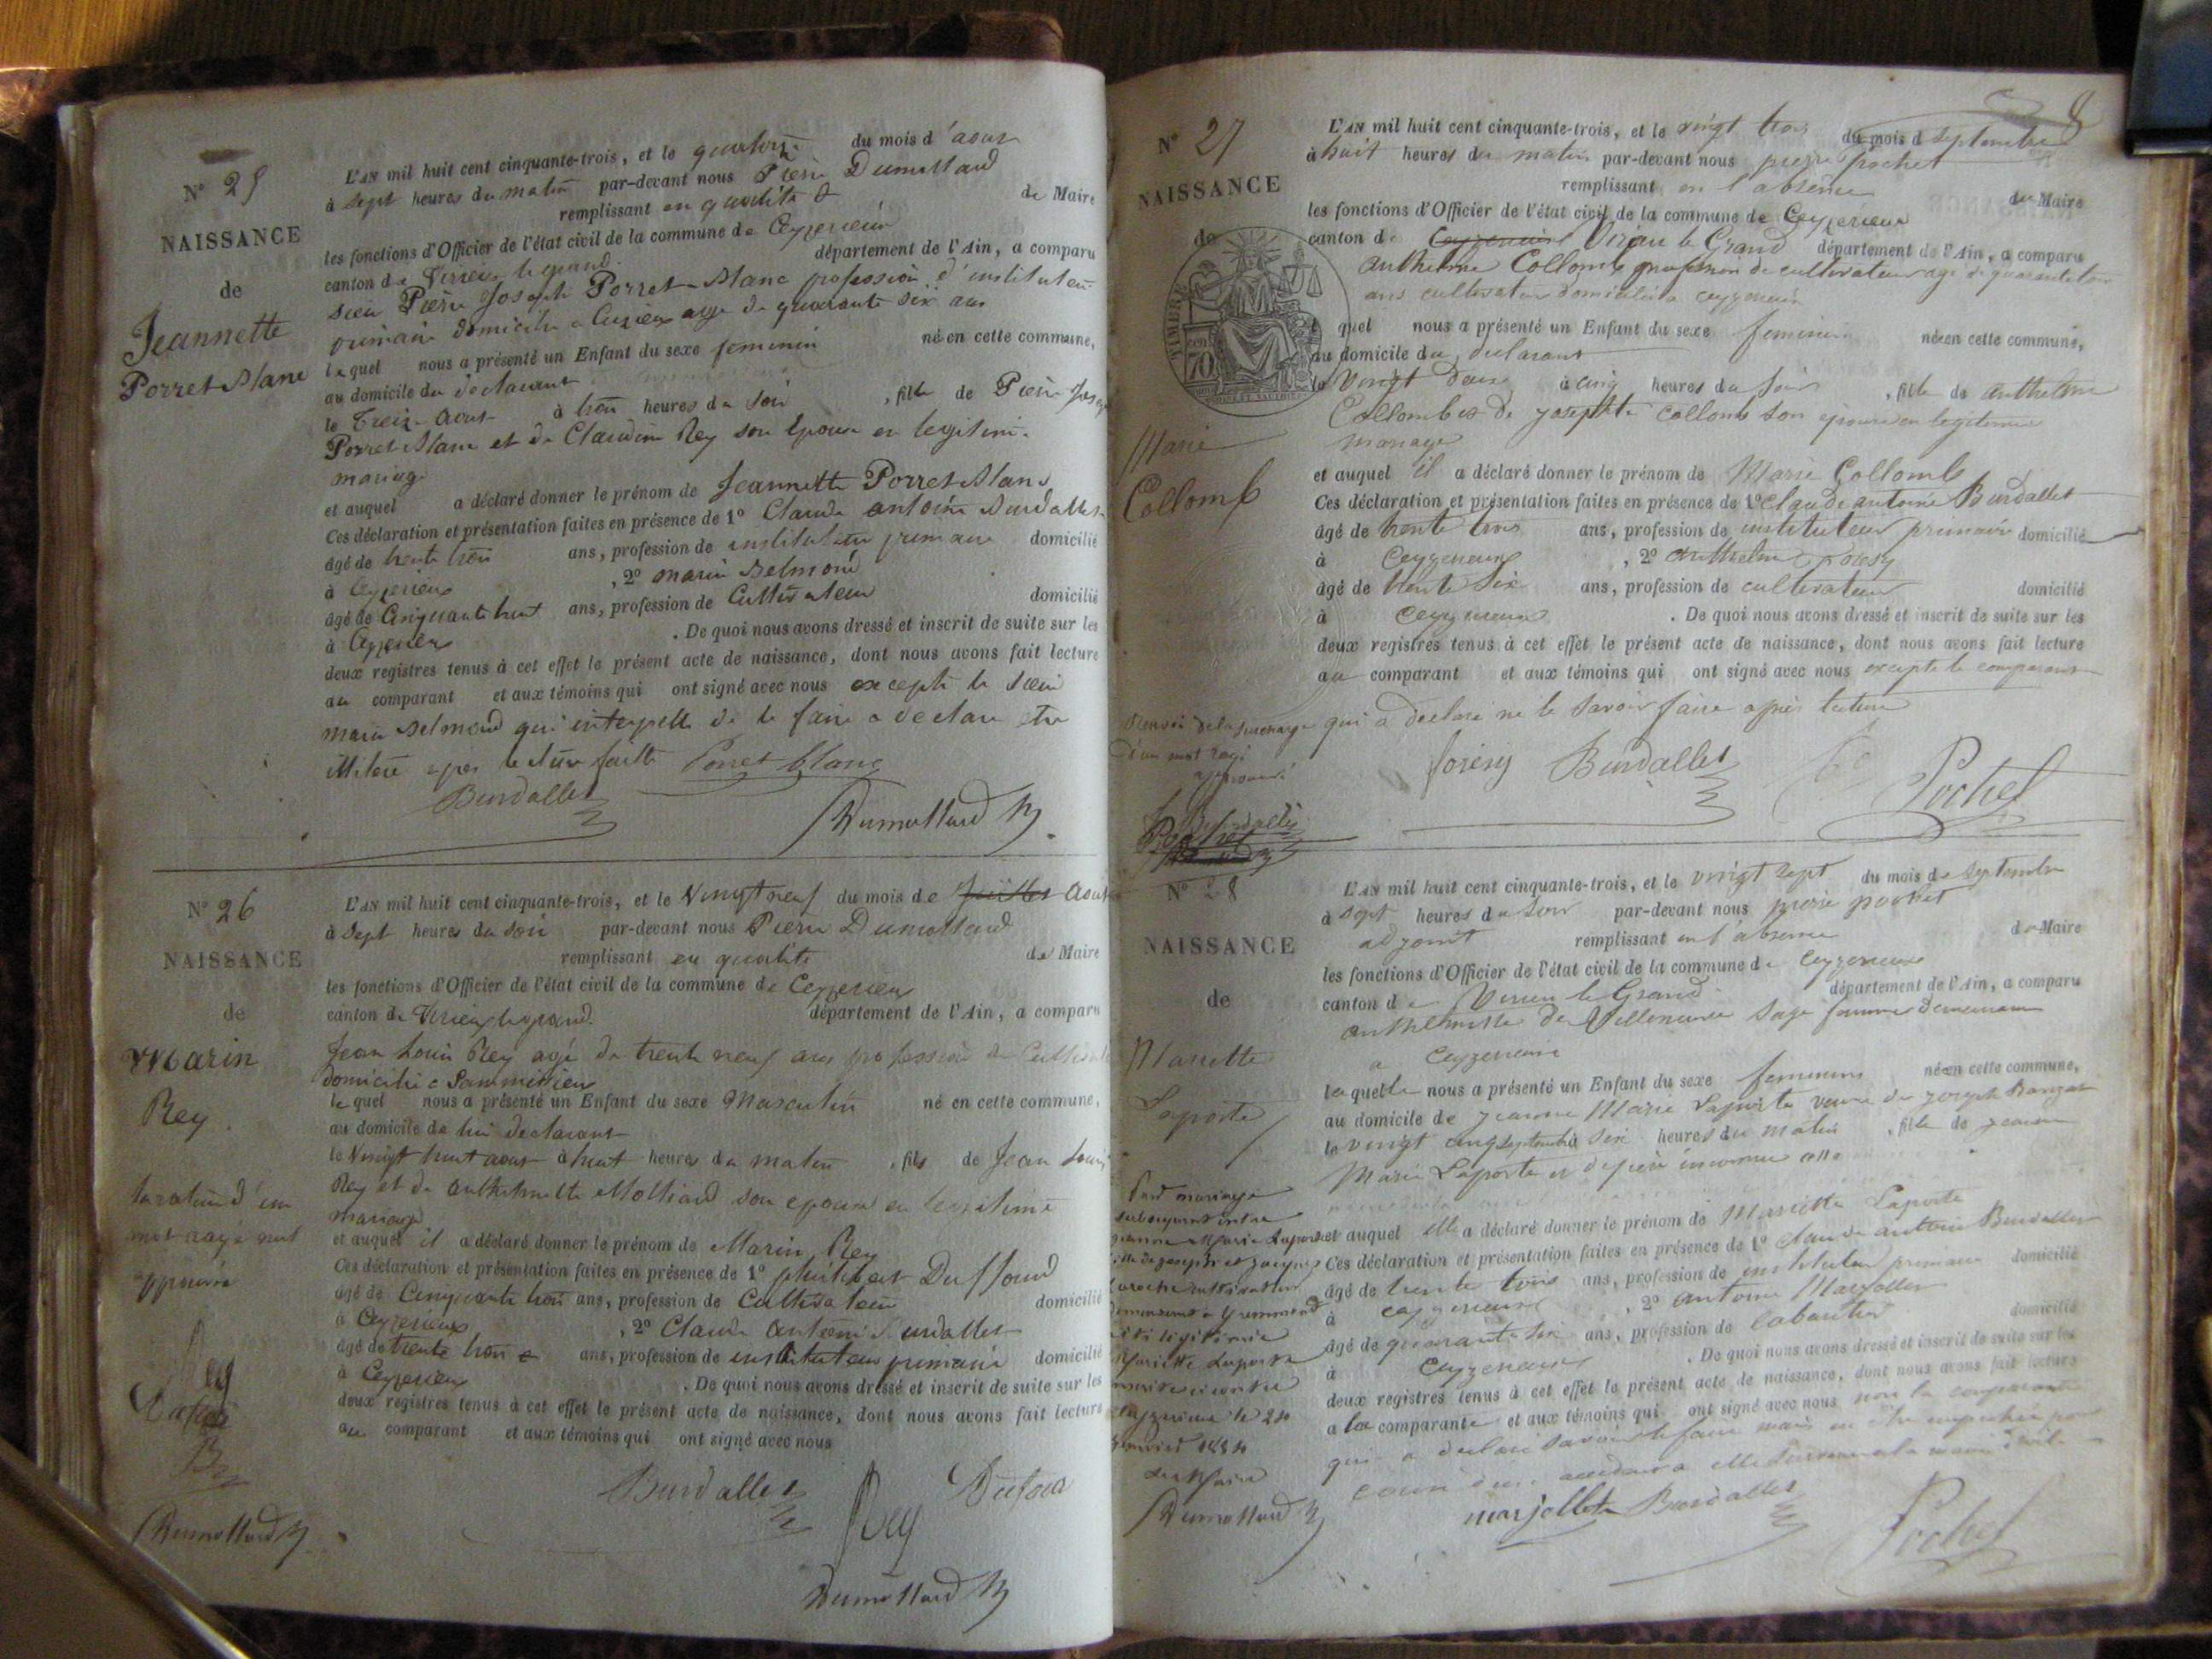 N° 25
NAISSANCE
de
Jeannette
Porret Blanc
L'AN mil huit cent cinquante-trois, et le quatorze du mois d'aout
à sept heures du matin par-devant nous Pierre Dumollard
remplissant en qualité de Maire
les fonctions d'Officier de l'état civil de la commune de Ceyzerieu
canton de Virieu le grand département de l'Ain, a comparu
sieur Pierre Joseph Porret-Blanc profession d'instituteur
primaire domicilié a Cuzieu age de quarante six ans
lequel nous a présenté un Enfant du sexe feminin né en cette commune,
au domicile du declarant
le Treize Aout à trois heures du soir, fille de Pierre Joseph
Porret Blanc et de Claudine Rey son epouse en legitime
mariage
et auquel a déclaré donner le prénom de Jeannette Porret Blanc
Ces déclaration et présentation faites en présence de 1° Claude antoine Burdallet
âgé de trente trois ans, profession de instituteur primaire domicilié
à Ceyzerieu, 2° marin Belmond
âgé de Cinquante huit ans, profession de Cultivateur domicilié
à Ceyzerieu. De quoi nous avons dressé et inscrit de suite sur les
deux registres tenus à cet effet le présent acte de naissance, dont nous avons fait lecture
au comparant et aux témoins qui ont signé avec nous excepté le sieur
marin Belmond qui interpellé de le faire a declaré etre
illiteré apres lecture faite Porret blanc
Burdallet
Dumollard M
N° 26
NAISSANCE
de
Marin
Rey
L'AN mil huit cent cinquante-trois, et le Vingt neuf du mois de juillet Aout
à sept heures du soir par-devant nous Pierre Dumollard
remplissant en qualité de Maire
les fonctions d'Officier de l'état civil de la commune de Ceyzerieu
canton de Virieu le grand. département de l'Ain, a comparu
Jean Louis Rey agé de trente neuf ans profession de
domicilié a
lequel nous a présenté un Enfant du sexe Masculin né en cette commune,
au domicile de lui declarant
le Vingt huit aout à huit heures du matin, fils de Jean Louis
Rey et de Molliard son epouse en legitime
mariage
et auquel il a déclaré donner le prénom de Marin Rey
Ces déclaration et présentation faites en présence de 1° Duffourd
âgé de Cinquante trois ans, profession de Cultivateur domicilié
à Ceyzerieu, 2° Claude Antoine Burdallet
âgé de trente trois ans, profession de instituteur primaire domicilié
à Ceyzerieu. De quoi nous avons dressé et inscrit de suite sur les
deux registres tenus à cet effet le présent acte de naissance, dont nous avons fait lecture
au comparant et aux témoins qui ont signé avec nous
mot rayé nul
Burdallet Rey Dufour
Dumollard M
Dumollard M
8
N° 27
NAISSANCE
de
TIMBRE
70
Marie
Collomb
L'AN mil huit cent cinquante-trois, et le vingt trois du mois d septembre
à huit heures du matin par-devant nous pierre pochet
remplissant en l'absence du Maire
les fonctions d'Officier de l'état civil de la commune de Ceyzerieux
canton de Ceyzerieux Virieu le Grand département de l'Ain, a comparu
anthelme Collomb profession de cultivateur agé de quarante trois
ans cultivateur domicilié a ceyzerieu
quel nous a présenté un Enfant du sexe feminin née en cette commune,
au domicile du declarant
le Vingt deux à cinq heures du soir, fille de anthelme
Collomb et de josephte collomb son epouse en legitime
mariage
et auquel il a déclaré donner le prénom de Marie Collomb
Ces déclaration et présentation faites en présence de 1° Claude antoine Burdallet
âgé de trente trois ans, profession de instituteur primaire domicilié
à Ceyzerieux, 2° anthelme
âgé de trente six ans, profession de cultivateur domicilié
à Ceyzerieux. De quoi nous avons dressé et inscrit de suite sur les
deux registres tenus à cet effet le présent acte de naissance, dont nous avons fait lecture
au comparant et aux témoins qui ont signé avec nous excepté le comparant
qui a declaré ne le savoir faire après lecture
d'un mot rayé
approuvé
Burdallet
Pochet
N° 28
NAISSANCE
de
Mariette
Laporte
L'AN mil huit cent cinquante-trois, et le vingt sept du mois de septembre
à sept heures du soir par-devant nous pierre pochet
adjoint remplissant en l'absence du Maire
les fonctions d'Officier de l'état civil de la commune de Ceyzerieux
canton de Virieu le Grand département de l'Ain, a comparu
de Villeneuve sage femme demeurant
a Ceyzerieux
laquelle nous a présenté un Enfant du sexe feminin née en cette commune,
au domicile de jeanne Marie Laporte veuve de joseph
le vingt cinq septembre six heures du matin, fille de jeanne
Marie Laporte et de père inconnu
et auquel elle a déclaré donner le prénom de Mariette Laporte
Ces déclaration et présentation faites en présence de 1° claude antoine Burdallet
âgé de trente trois ans, profession de instituteur primaire domicilié
à ceyzerieux, 2° antoine Marjollet
âgé de quarante six ans, profession de laboureur domicilié
à Ceyzerieux. De quoi nous avons dressé et inscrit de suite sur les
deux registres tenus à cet effet le présent acte de naissance, dont nous avons fait lecture
a la comparante et aux témoins qui ont signé avec nous non la comparante
qui a declaré savoir le faire mais
Par mariage
subsequent entre
jeanne Marie Laporte
Mariette Laporte
le 24
janvier 1854
Le Maire
Dumollard M
marjollet Burdallet
Pochet